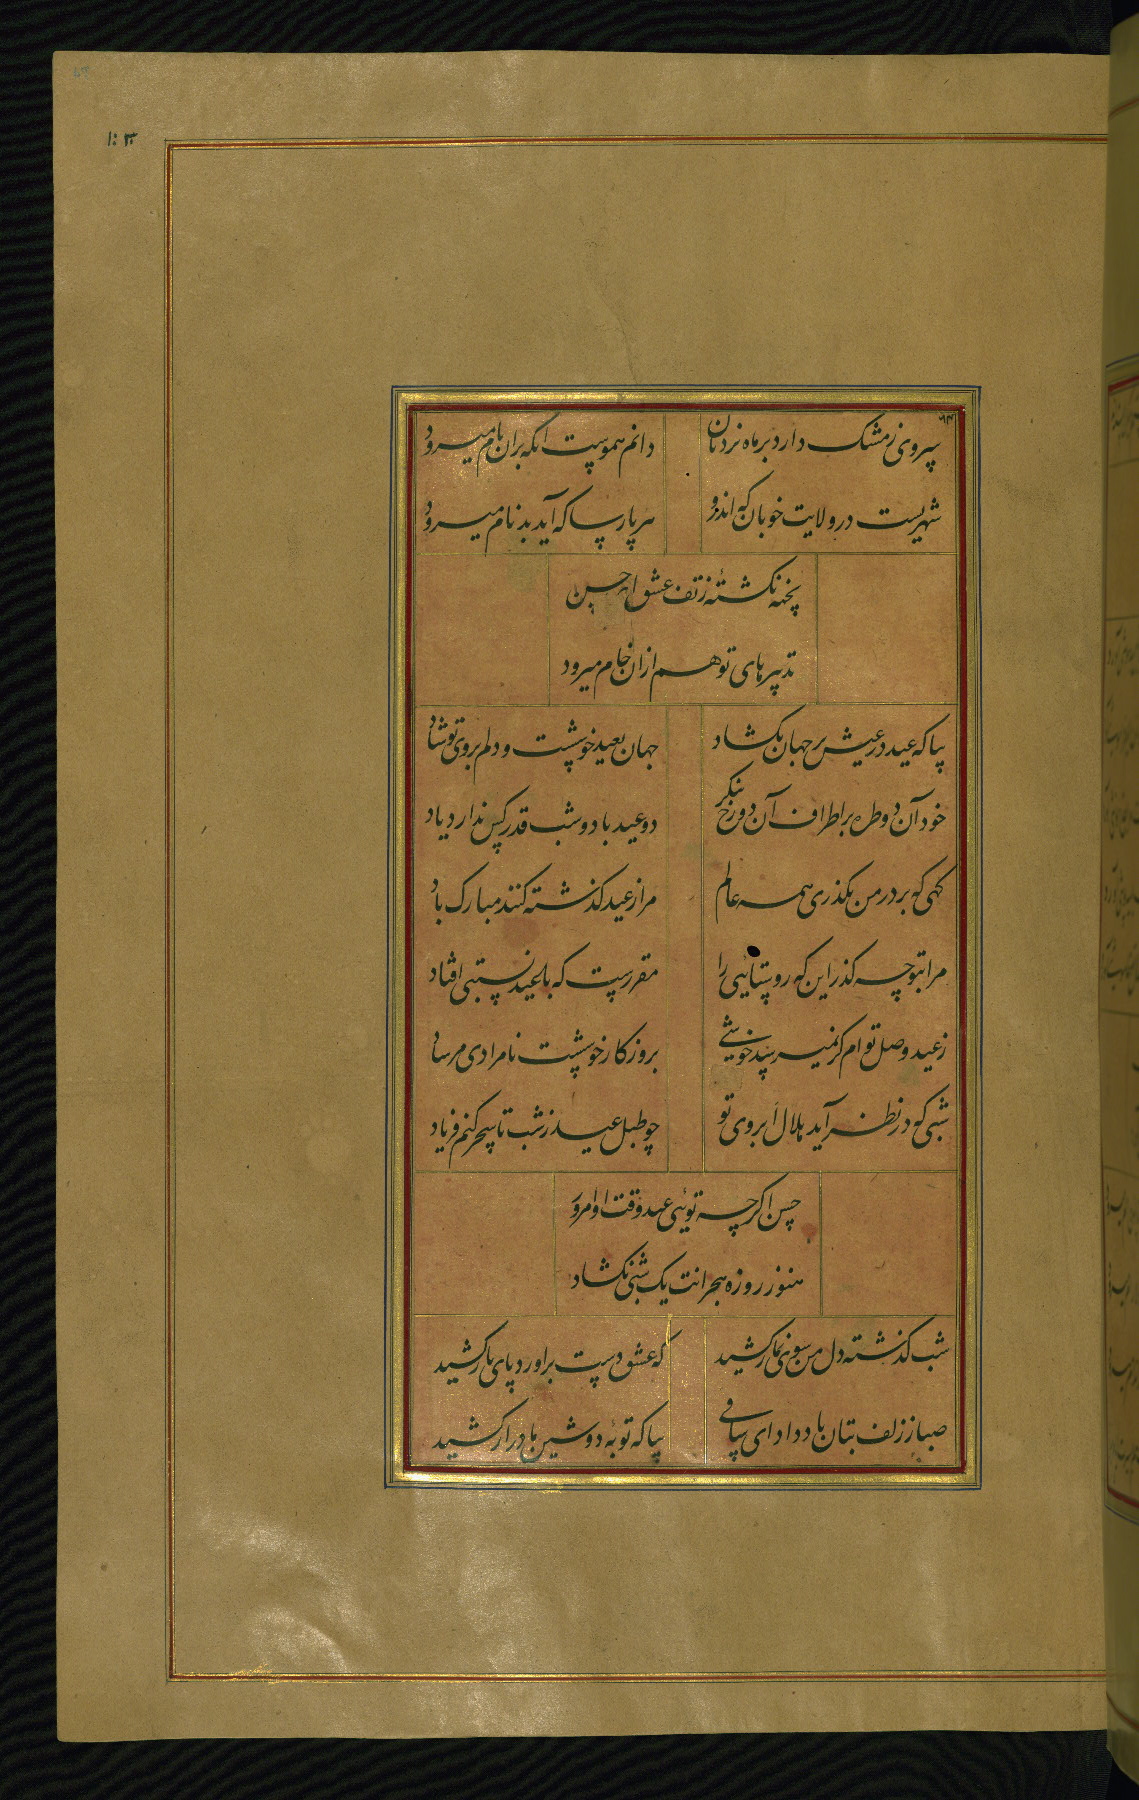 ۱۰۳
۶۳
بیرونی زمشک دارد بر ماه نردبان
دانم هموست انکه بران بام میرود
شهریست در ولایت خوبان که اندرو
هر پارسا که آید بدنام میرود
پخته نکشتهٔ زتف عشق ای حسن
تدبیرهای تو هم ازان خام میرود
بیا که عید در عیش بر جهان بکشاد
جهان بعید خوشست و دلم بروی تو شاد
خود آن دو طره بر اطراف آن دو رخ بنکر
دو عید با دو شب قدر کس ندارد یاد
کهی که بر در من بکذری همه عالم
مرا ز عید کذشته کنند مبارک باد
مرا بتو چه کذر این که روستائی را
مقررست که با عید نسبتی افتاد
ز عید وصل تو ام کر نمیرسد خوشیی
بروزکار خوشت نامرادی مرساد
شبی که در نظر آید هلال ابروی تو
چو طبل عید ز شب تا سحر کنم فریاد
حسن اکرچه توئی عهد وقت او امروز
هنوز روزه هجرانت یک شبی نکشاد
شب کذشته دل من سوی نکار کشید
که عشق دست براورد پای یار کشید
صبا ز زلف بتان باد داد ای ساقی
بیا که توبهٔ دوشین ما دراز کشید